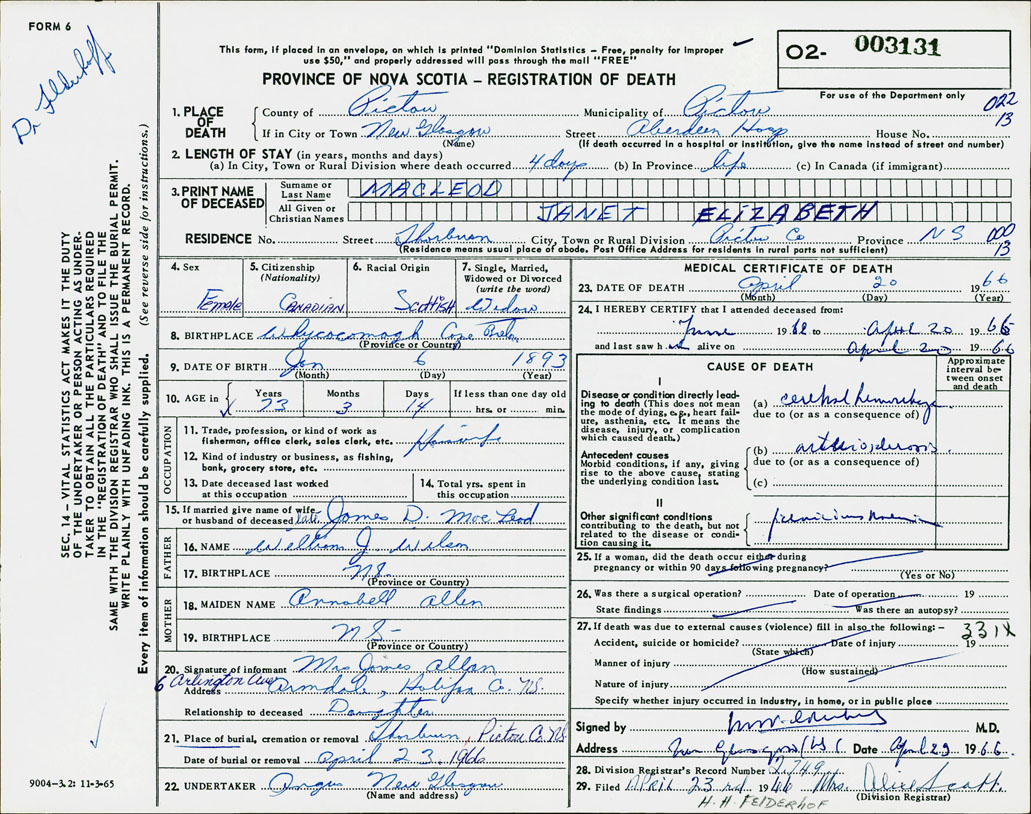 FORM 6
Dr Felderhof
This form, if placed in an envelope, on which is printed "Dominion Statistics – Free, penalty for improper
use $50," and properly addressed will pass through the mail "FREE"
PROVINCE OF NOVA SCOTIA – REGISTRATION OF DEATH
O2- 003131
For use of the Department only
022
13
SEC. 14 – VITAL STATISTICS ACT MAKES IT THE DUTY
OF THE UNDERTAKER OR PERSON ACTING AS UNDER-
TAKER TO OBTAIN ALL THE PARTICULARS REQUIRED
IN THE "REGISTRATION OF DEATH" AND TO FILE THE
SAME WITH THE DIVISION REGISTRAR WHO SHALL ISSUE THE BURIAL PERMIT.
WRITE PLAINLY WITH UNFADING INK. THIS IS A PERMANENT RECORD.
Every item of information should be carefully supplied. (See reverse side for instructions.)
1. PLACE OF DEATH
County of Pictou Municipality of Pictou
If in City or Town New Glasgow Street Aberdeen Hosp House No.
(Name) (If death occurred in a hospital or institution, give the name instead of street and number)
2. LENGTH OF STAY (in years, months and days)
(a) In City, Town or Rural Division where death occurred 4 days (b) In Province life (c) In Canada (if immigrant)
3. PRINT NAME OF DECEASED
Surname or Last Name MACLEOD
All Given or Christian Names JANET ELIZABETH
RESIDENCE No. Street Thorburn City, Town or Rural Division Pictou Co Province NS
000
13
(Residence means usual place of abode. Post Office Address for residents in rural parts not sufficient)
4. Sex Female
5. Citizenship (Nationality) CANADIAN
6. Racial Origin Scottish
7. Single, Married, Widowed or Divorced (write the word) Widow
8. BIRTHPLACE Whycocomagh Cape Breton
(Province or Country)
9. DATE OF BIRTH Jan 6 1893
(Month) (Day) (Year)
10. AGE in Years Months Days If less than one day old
73 3 14 hrs. or min.
OCCUPATION
11. Trade, profession, or kind of work as
fisherman, office clerk, sales clerk, etc. Housewife
12. Kind of industry or business, as fishing,
bank, grocery store, etc.
13. Date deceased last worked
at this occupation
14. Total yrs. spent in
this occupation
15. If married give name of wife
or husband of deceased late James D. MacLeod
FATHER
16. NAME William J. Wilson
17. BIRTHPLACE N.S.
(Province or Country)
MOTHER
18. MAIDEN NAME Annabell Allen
19. BIRTHPLACE N S -
(Province or Country)
20. Signature of informant Mrs James Allan
6 Arlington Ave
Address Armdale, Halifax Co. N.S.
Relationship to deceased Daughter
21. Place of burial, cremation or removal Thorburn, Pictou Co NS
Date of burial or removal April 23 1966
22. UNDERTAKER Angus New Glasgow
(Name and address)
9004-3.2: 11-3-65
MEDICAL CERTIFICATE OF DEATH
23. DATE OF DEATH April 20 1966
(Month) (Day) (Year)
24. I HEREBY CERTIFY that I attended deceased from:
June 1962 to April 20 1966
and last saw h er alive on April 20 1966
CAUSE OF DEATH
Approximate interval between onset and death
I
Disease or condition directly leading to death (This does not mean
the mode of dying, e.g., heart failure, asthenia, etc. It means the
disease, injury, or complication
which caused death.)
(a) cerebral hemorrhage
due to (or as a consequence of)
Antecedent causes
Morbid conditions, if any, giving
rise to the above cause, stating
the underlying condition last.
(b) arteriosclerosis
due to (or as a consequence of)
(c)
II
Other significant conditions
contributing to the death, but not
related to the disease or condition causing it.
pernicious anemia
25. If a woman, did the death occur either during
pregnancy or within 90 days following pregnancy?
(Yes or No)
26. Was there a surgical operation? Date of operation 19
State findings Was there an autopsy?
27. If death was due to external causes (violence) fill in also the following: –
331X
Accident, suicide or homicide? Date of injury 19
(State which)
Manner of injury
(How sustained)
Nature of injury
Specify whether injury occurred in industry, in home, or in public place
Signed by M.D.
Address New Glasgow NS Date April 23 1966
28. Division Registrar's Record Number 2,749
29. Filed APRIL 23rd 1966 Mrs. Alice Scott
(Division Registrar)
H. H. FELDERHOF